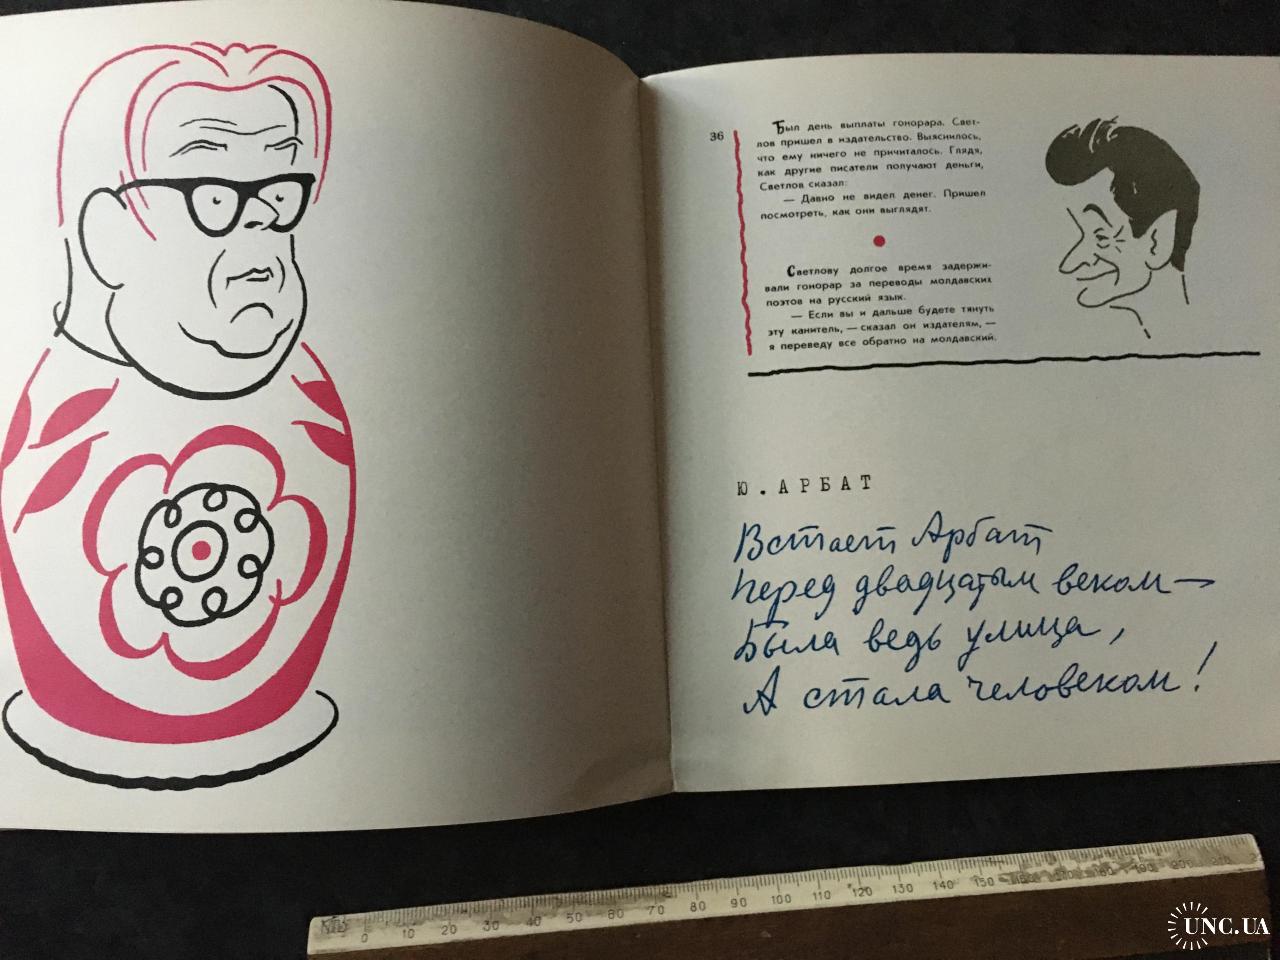 36
Был день выплаты гонорара. Свет-
лов пришел в издательство. Выяснилось,
что ему ничего не причиталось. Глядя,
как другие писатели получают деньги,
Светлов сказал:
— Давно не видел денег. Пришел
посмотреть, как они выглядят.
Светлову долгое время задержи-
вали гонорар за переводы молдавских
поэтов на русский язык.
— Если вы и дальше будете тянуть
эту канитель, — сказал он издателям, —
я переведу все обратно на молдавский.
Ю. АРБАТ
Встает Арбат
Перед двадцатым веком —
Была ведь улица,
А стала человеком!
0 10 20 30 40 50 60 70 80 90 100 110 120 130 140 150 160 170 180 190 200 210
UNC.UA